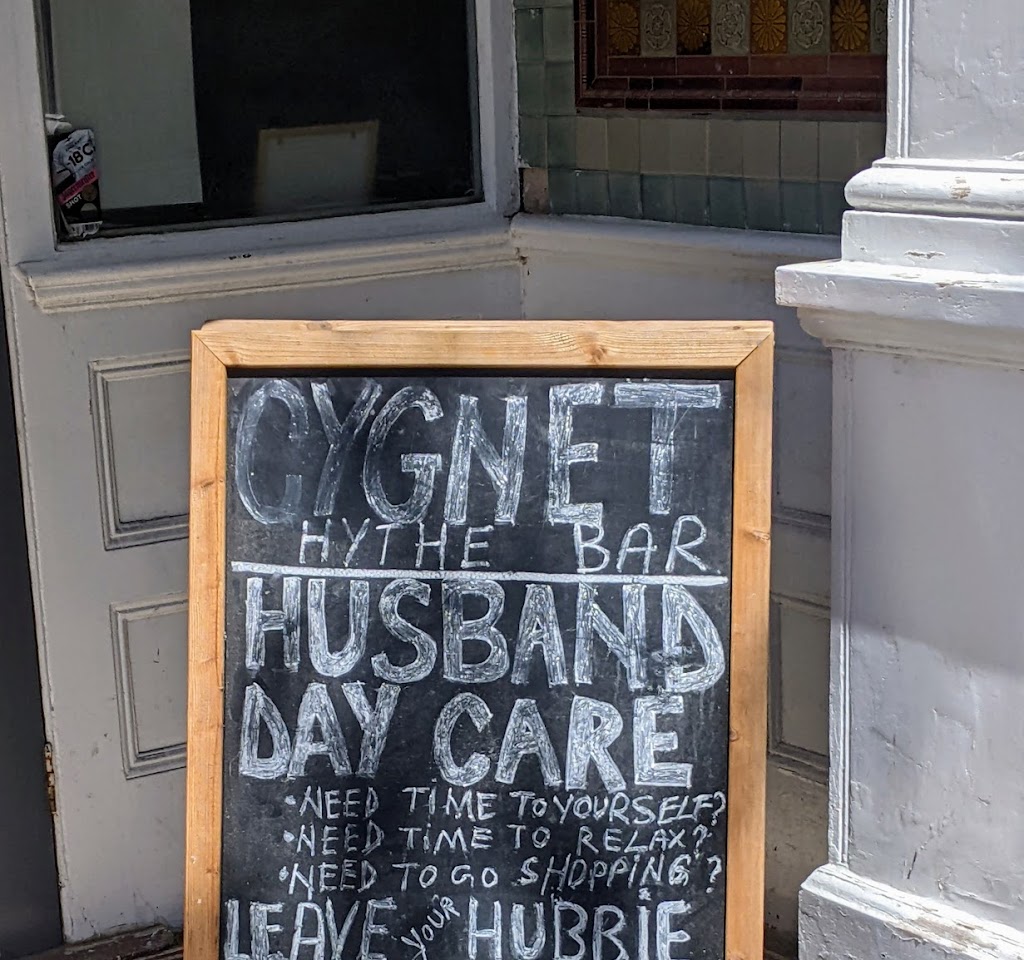 18
SHOT
CYGNET
HYTHE BAR
HUSBAND
DAY CARE
•NEED TIME TO YOURSELF?
•NEED TIME TO RELAX?
•NEED TO GO SHOPPING?
LEAVE YOUR HUBBIE